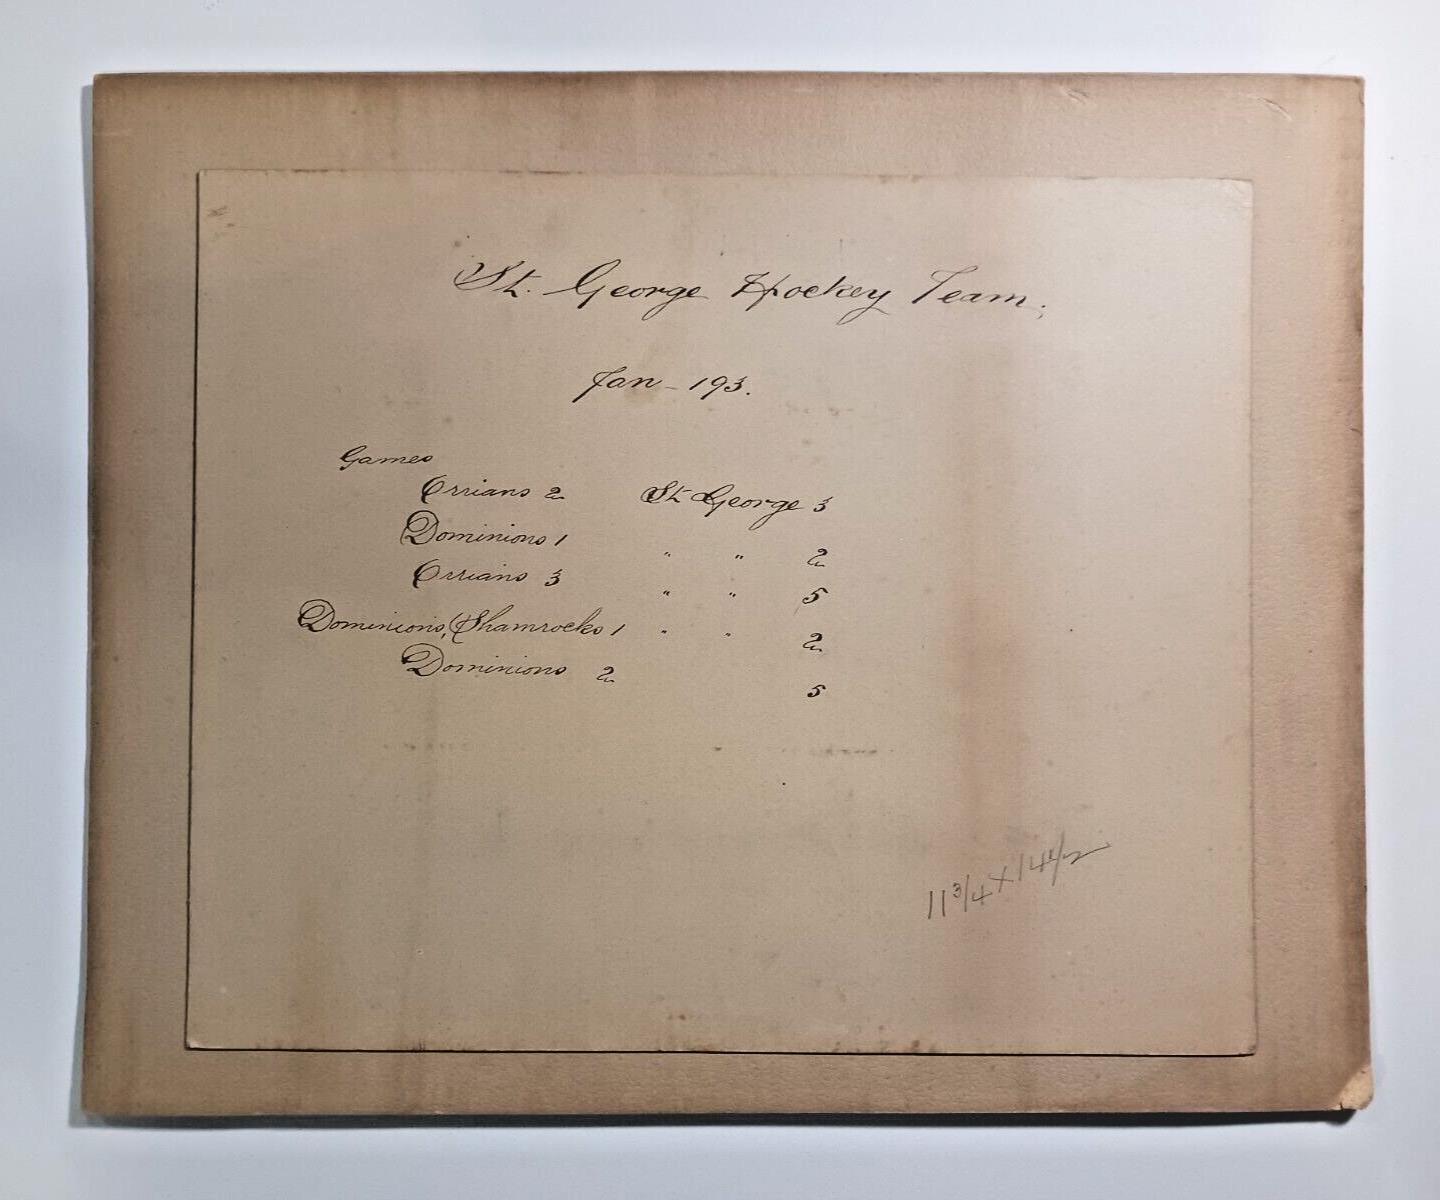 St. George Hockey Team.
Jan - 193.
Games
Orrians 2 St George 3
Dominions 1 " " 2
Orrians 3 " " 5
Dominions, Shamrocks 1 " " 2
Dominions 2 5
11 3/4 x 14 1/2